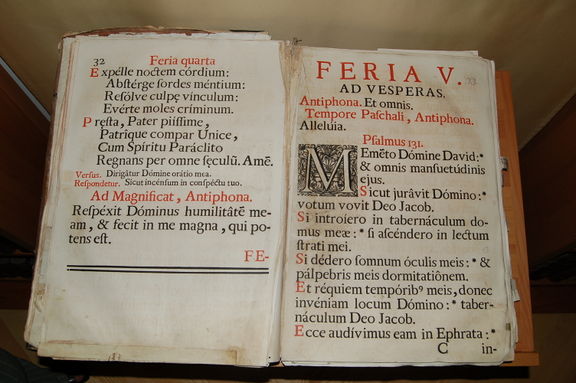 32 Feria quarta
Expélle noctem córdium:
Abstérge sordes méntium:
Reſólve culpę vínculum:
Evérte moles críminum.
Pręsta, Pater piíſſime,
Patrique compar Unice,
Cum Spíritu Paráclito
Regnans per omne ſęculū. Amē.
Versus. Dirigátur Dómine orátio mea.
Respondetur. Sicut incénſum in conſpéctu tuo.
Ad Magnificat, Antiphona.
Reſpéxit Dóminus humilitátē me-
am, & fecit in me magna, qui po-
tens eſt.
FE-
FERIA V.
AD VESPERAS.
Antiphona. Et omnis.
Tempore Paſchali, Antiphona.
Allelúia.
Pſalmus 131.
MEméto Dómine David:*
& omnis manſuetúdinis
ejus.
Sicut jurávit Dómino:*
votum vovit Deo Jacob.
Si introíero in tabernáculum do-
mus meæ: * ſi aſcéndero in lectum
ſtrati mei.
Si dédero ſomnum óculis meis: * &
pálpebris meis dormitatiónem.
Et réquiem tempóribꝰ meis, donec
invéniam locum Dómino: * taber-
náculum Deo Jacob.
Ecce audívimus eam in Ephrata: *
C in-